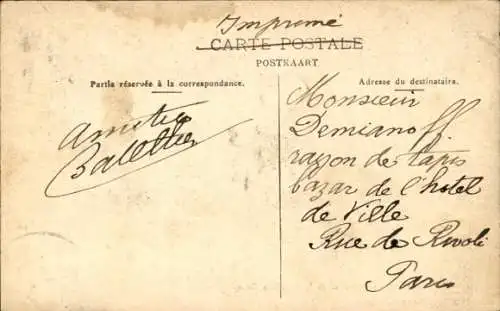 Imprimé
CARTE POSTALE
POSTKAART
Partie réservée à la correspondance.
Adresse du destinataire.
Amitiés
Monsieur
Demianoff.
rayon de tapis
bazar de l'hotel
de Ville
Rue de Rivoli
Paris